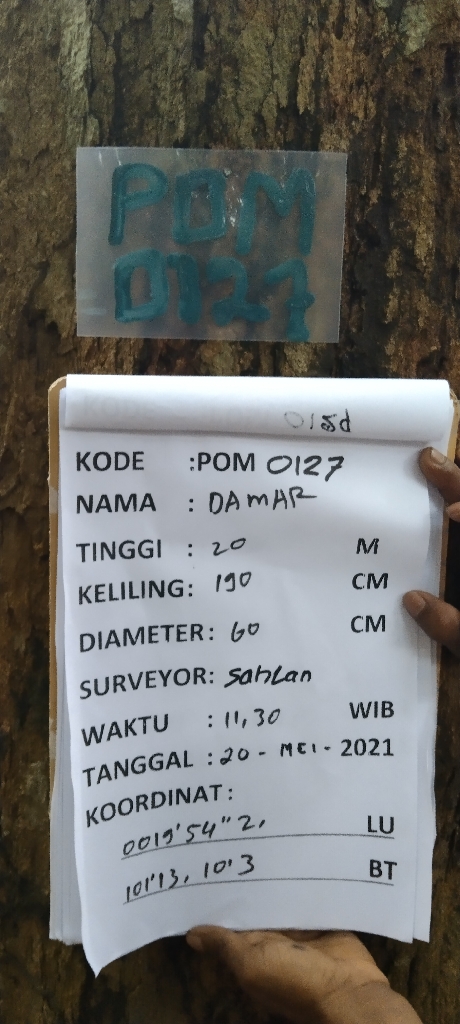 POM
0127
015d
KODE :POM 0127
NAMA : DAMAR
TINGGI : 20 M
KELILING: 190 CM
DIAMETER: 60 CM
SURVEYOR: Sahlan
WAKTU : 11,30 WIB
TANGGAL : 20 - MEI - 2021
KOORDINAT:
0019'54"2, LU
101'13, 10'3 BT